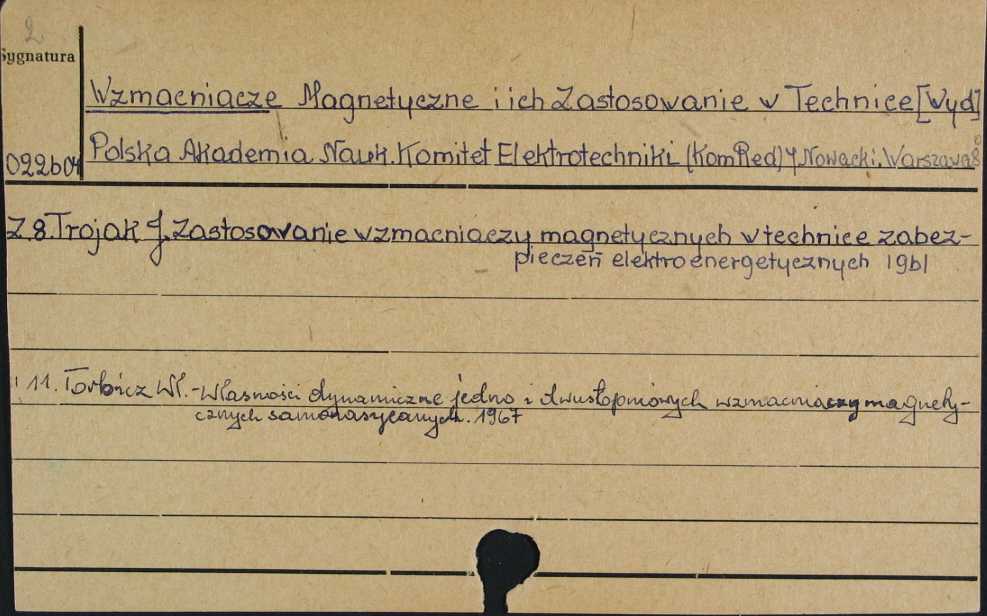 2
Sygnatura
Wzmacniacze Magnetyczne i ich Zastosowanie w Technice [Wyd]
022b04 Polska Akademia Nauk. Komitet Elektrotechniki (Kom Red) Nowacki. Warszawa
Z 8. Trojak J. Zastosowanie wzmacniaczy magnetycznych w technice zabez-
pieczeń elektroenergetycznych 1961
11. Torbicz Wł. - Własności dynamiczne jedno i dwustopniowych wzmacniaczy magnety-
cznych samonasycanych. 1967